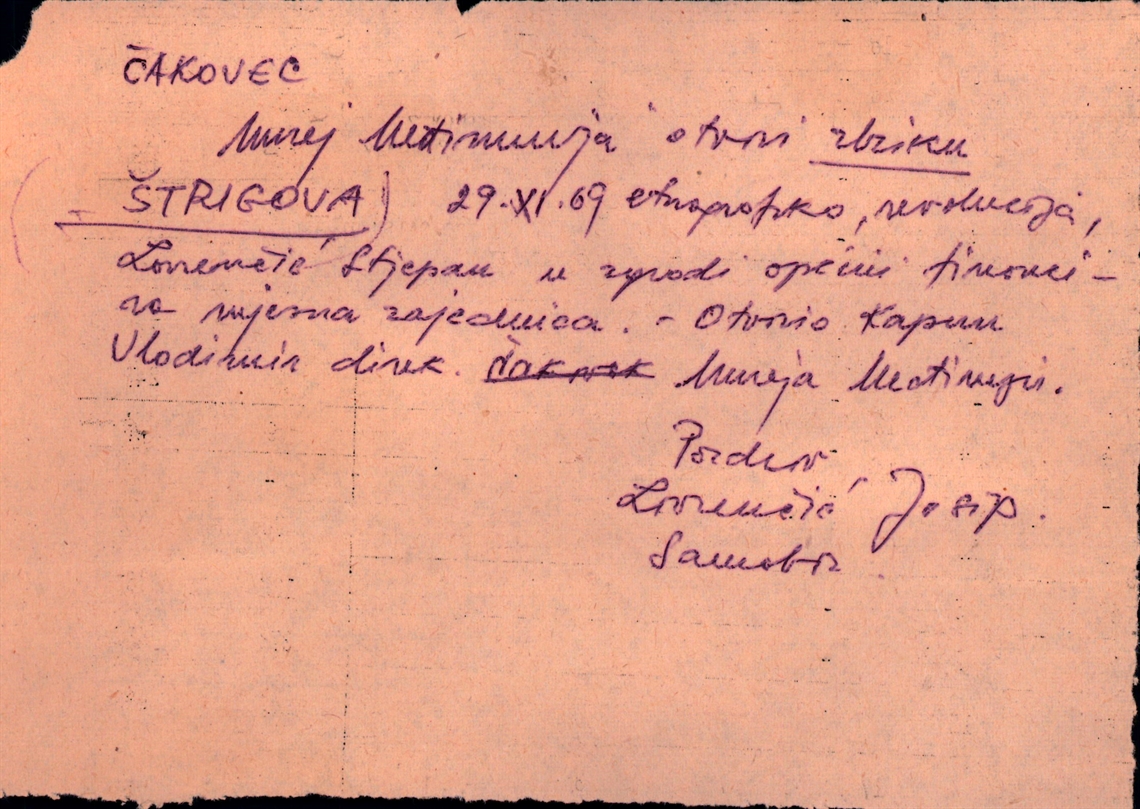 ČAKOVEC
Muzej Međimurja otvori zbirku
ŠTRIGOVA) 29.XI.69 etnografsko, revolucija,
Lovrenčić Stjepan u zgradi općini financi-
ra mjesna zajednica. - Otvorio Kapun
Vladimir direk. Muzeja Međimurja.
Pozdrav
Lovrenčić Josip.
Samobor